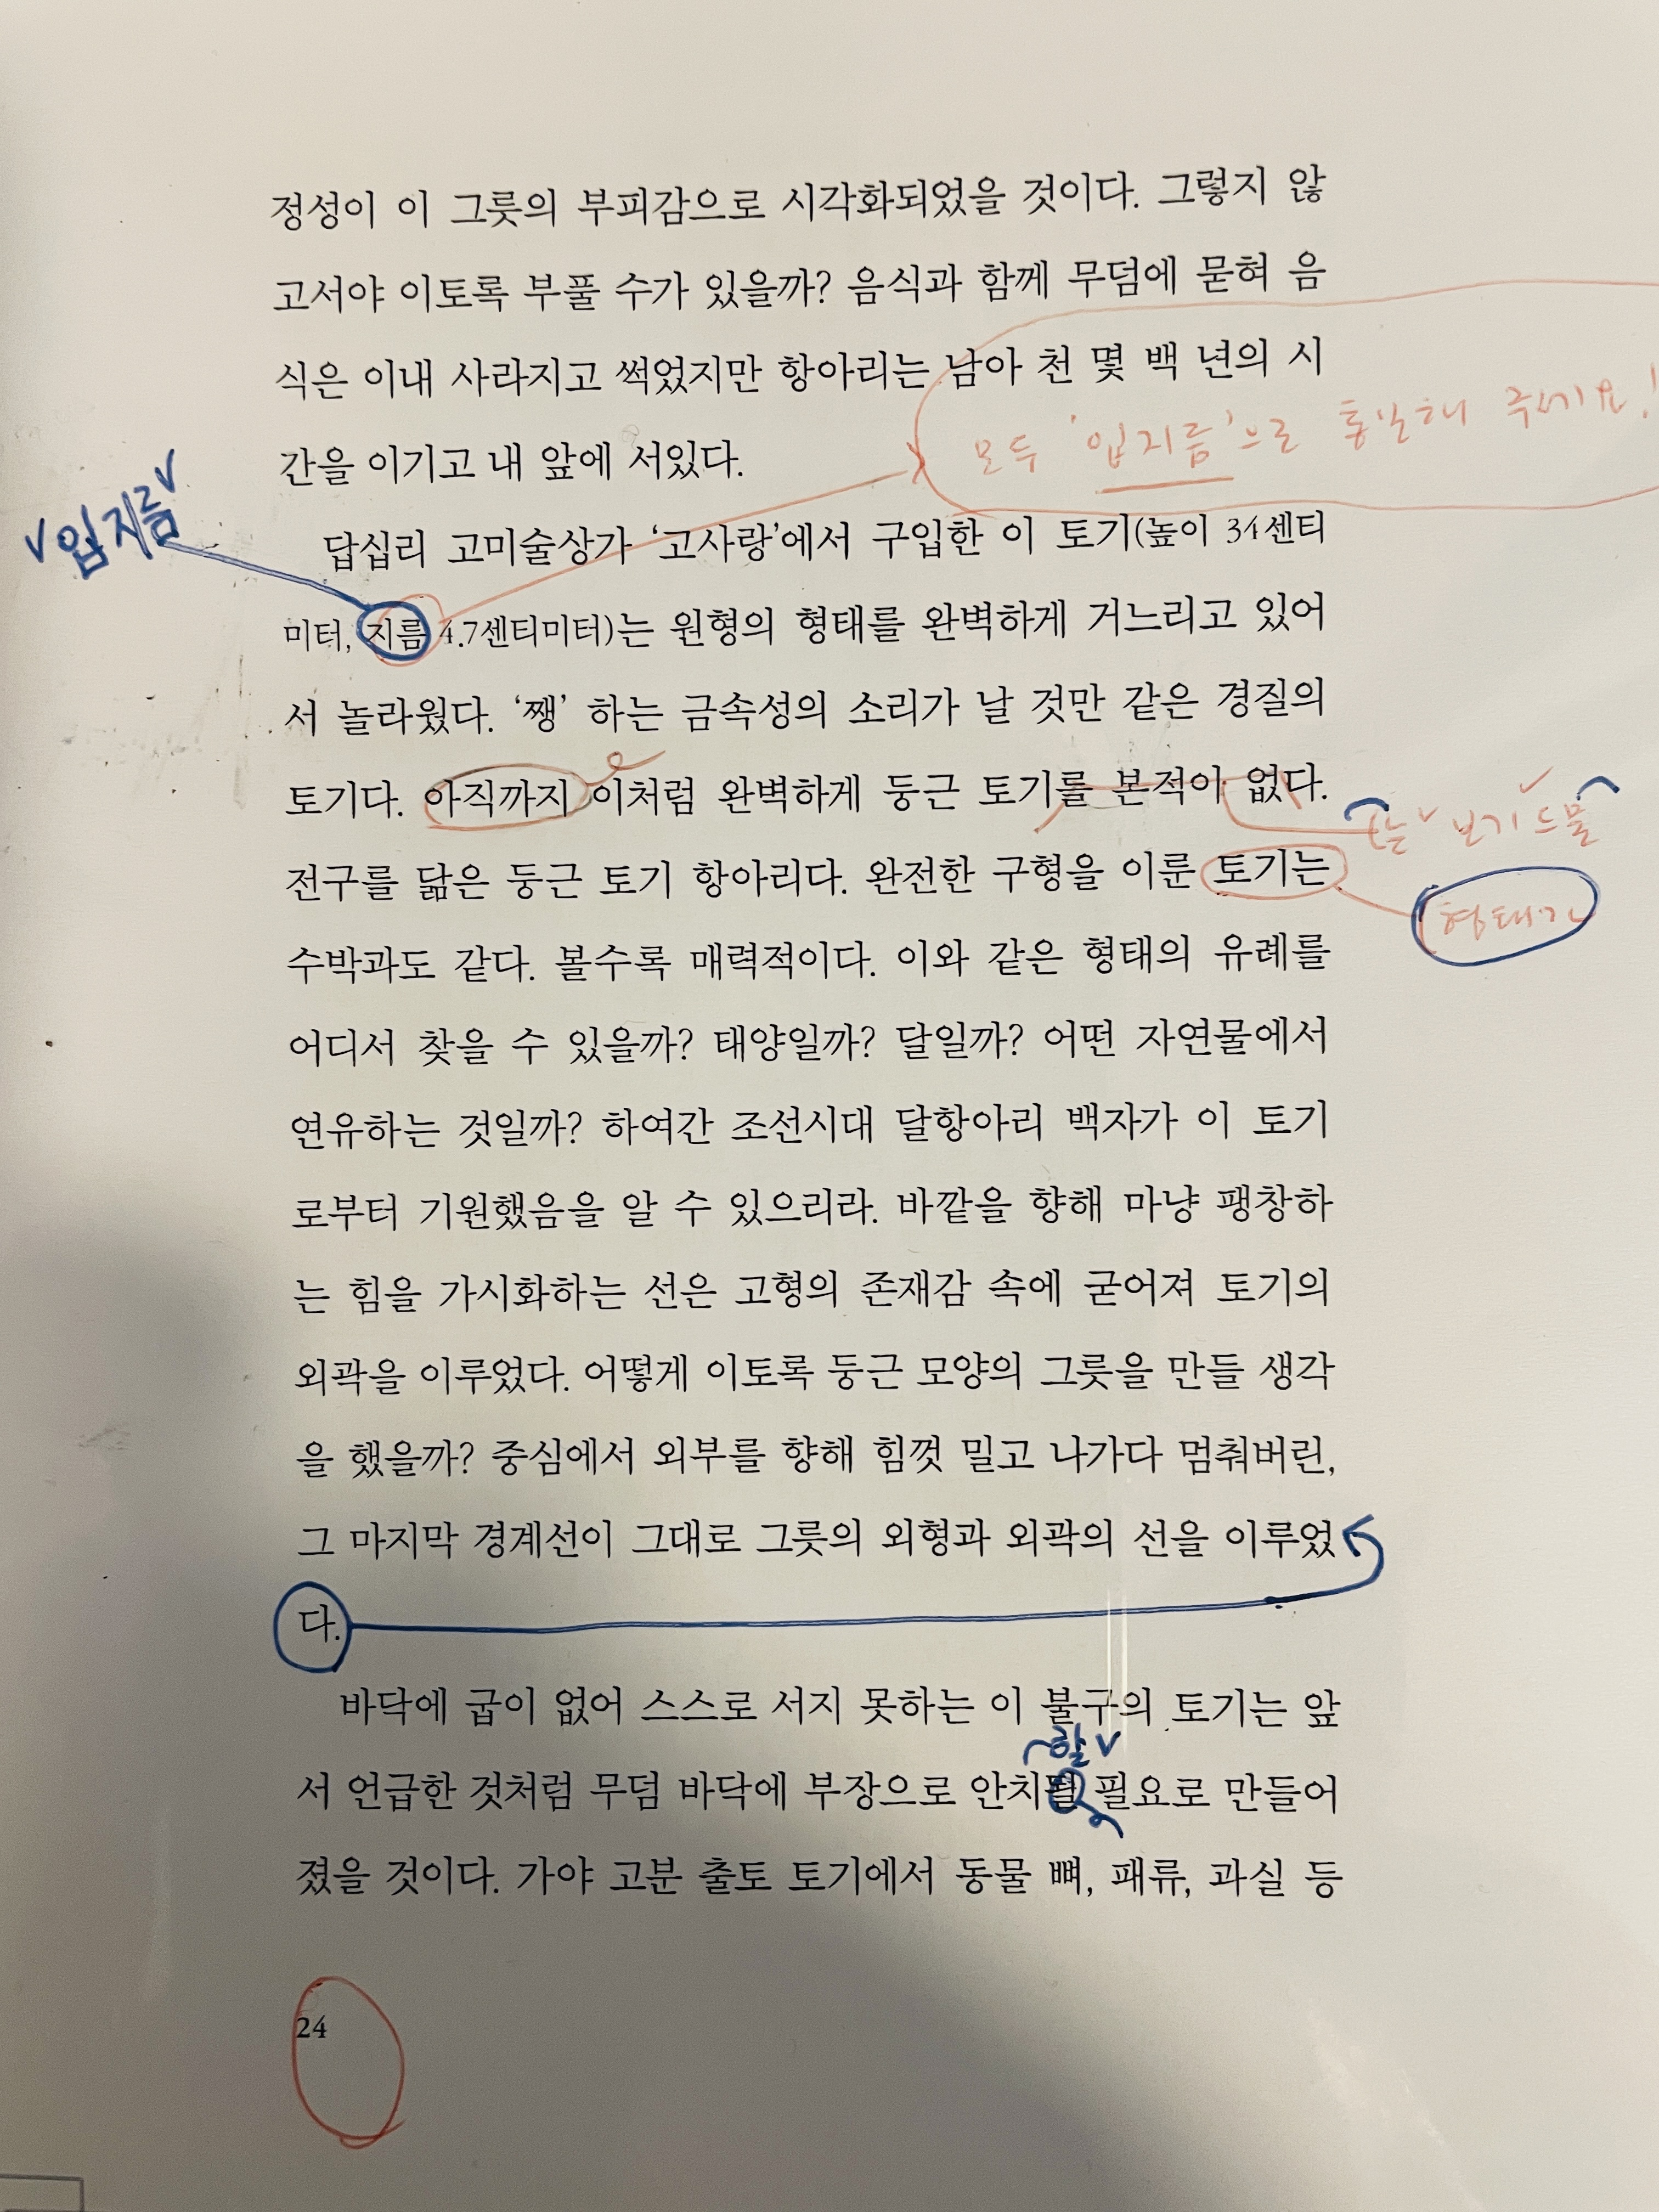 정성이 이 그릇의 부피감으로 시각화되었을 것이다. 그렇지 않
고서야 이토록 부풀 수가 있을까? 음식과 함께 무덤에 묻혀 음
식은 이내 사라지고 썩었지만 항아리는 남아 천 몇 백 년의 시
모두 '입지름'으로 통일해 주세요!
간을 이기고 내 앞에 서있다.
입지름
답십리 고미술상가 '고사랑'에서 구입한 이 토기(높이 34센티
미터, 지름 4.7센티미터)는 원형의 형태를 완벽하게 거느리고 있어
서 놀라웠다. '쨍' 하는 금속성의 소리가 날 것만 같은 경질의
토기다. 아직까지 이처럼 완벽하게 둥근 토기를 본적이 없다.
는 보기 드물
전구를 닮은 둥근 토기 항아리다. 완전한 구형을 이룬 토기는
형태가
수박과도 같다. 볼수록 매력적이다. 이와 같은 형태의 유례를
어디서 찾을 수 있을까? 태양일까? 달일까? 어떤 자연물에서
연유하는 것일까? 하여간 조선시대 달항아리 백자가 이 토기
로부터 기원했음을 알 수 있으리라. 바깥을 향해 마냥 팽창하
는 힘을 가시화하는 선은 고형의 존재감 속에 굳어져 토기의
외곽을 이루었다. 어떻게 이토록 둥근 모양의 그릇을 만들 생각
을 했을까? 중심에서 외부를 향해 힘껏 밀고 나가다 멈춰버린,
그 마지막 경계선이 그대로 그릇의 외형과 외곽의 선을 이루었
다.
바닥에 굽이 없어 스스로 서지 못하는 이 불구의 토기는 앞
할
서 언급한 것처럼 무덤 바닥에 부장으로 안치될 필요로 만들어
졌을 것이다. 가야 고분 출토 토기에서 동물 뼈, 패류, 과실 등
24